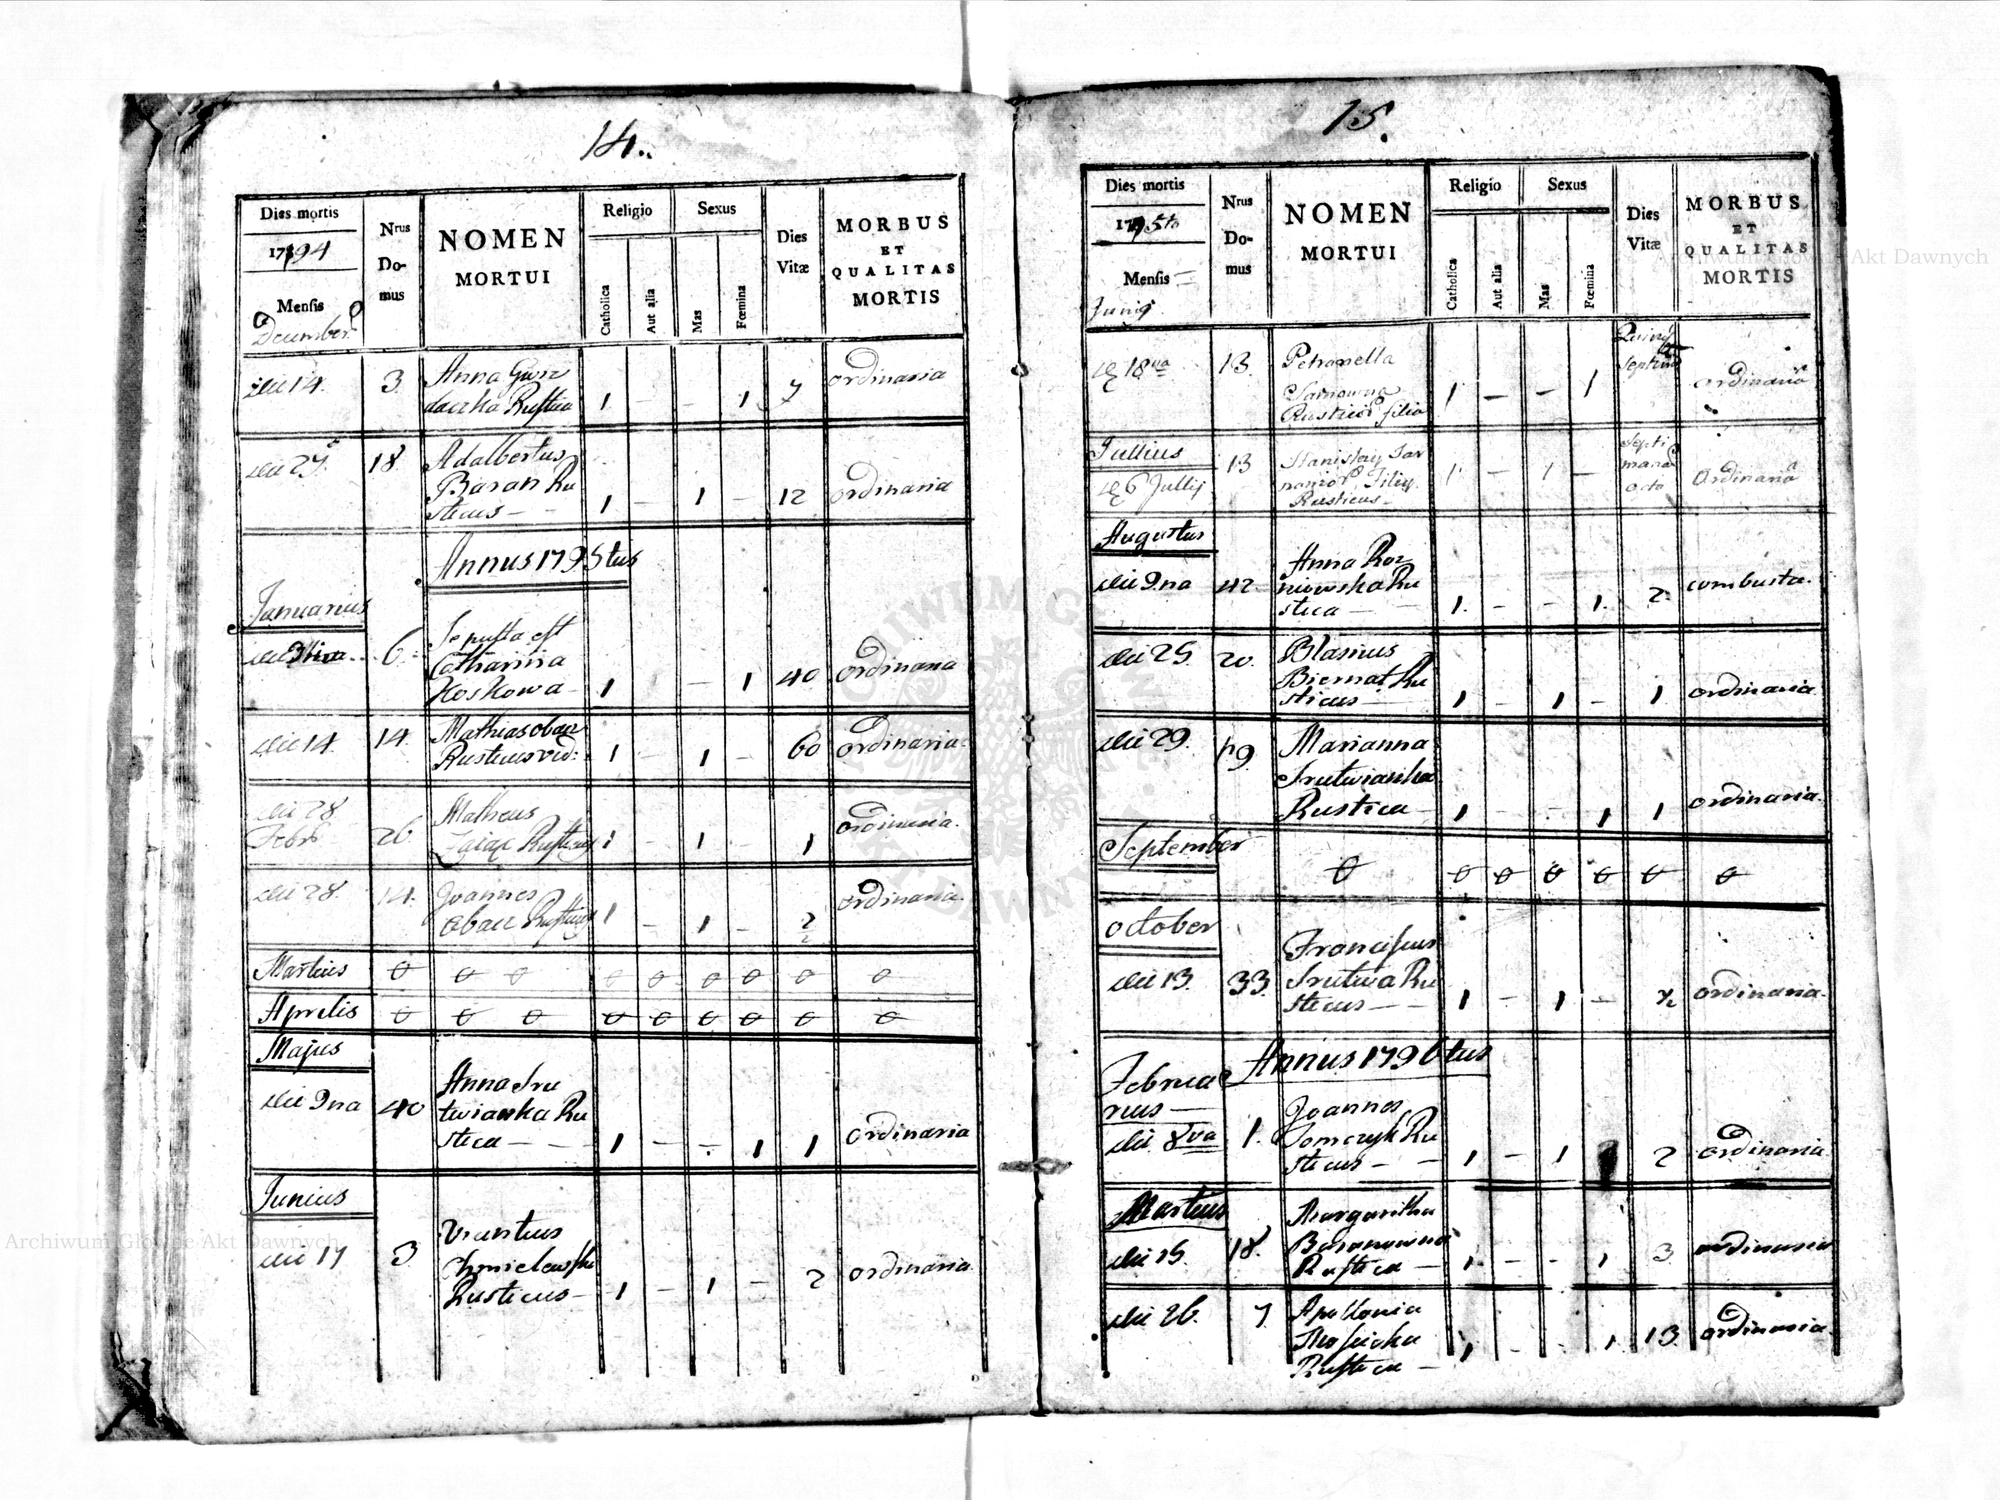 14.
Dies mortis
1794
Mensis
December
Nrus
Do-
mus
NOMEN
MORTUI
Religio
Catholica
Aut alia
Sexus
Mas
Fœmina
Dies
Vitæ
MORBUS
ET
QUALITAS
MORTIS
die 14. 3. Anna
Rustica 1 – – 1 7 ordinaria
die 27. 18 Adalbertus
Baran Ru
sticus – 1 – 1 – 12 ordinaria
Annus 1795tus
Januarius
die 6. Sepulta est
Catharina
Koskowa 1 – 1 40 ordinaria
die 14. 14. Mathias
Rusticus vid: 1 – 1 – 60 ordinaria
die 28
Febr 26 Matheus
Zaiac Rusticus 1 1 1 ordinaria.
die 28. 14. Joannes
Rusticus 1 – 1 – 2 ordinaria.
Martius 0 0 0 0 0 0 0 0 0
Aprilis 0 0 0 0 0 0 0 0 0
Majus
die 9na 40 Anna Sru
twianka Ru
stica – – 1 – – 1 1 ordinaria
Junius
die 17 3 Vicentius
Chmielewski
Rusticus – 1 – 1 – 2 ordinaria
15.
Dies mortis
1795ti
Mensis
Junij
Nrus
Do-
mus
NOMEN
MORTUI
Religio
Catholica
Aut alia
Sexus
Mas
Fœmina
Dies
Vitæ
MORBUS
ET
QUALITAS
MORTIS
18va 13. Petronella
filia 1 – – 1 ordinaria
Jullius
6 Jullij 13 Stanislaus
Rusticus – 1 – 1 – Septi
mana
octo ordinaria
Augustus
die 9na 42. Anna Roz
niowska Ru
stica – 1. – – 1. 2. combusta.
die 25 20. Blasius
Biernat Ru
sticus 1 – 1 – 1 ordinaria.
die 29. 19. Marianna
Srutwianka
Rustica – 1 1 1 ordinaria.
September 0 0 0 0 0 0 0
october
die 13. 33. Franciscus
Srutwa Ru
sticus – 1 – 1 – ½ ordinaria.
Annus 1796tus
Februa
rius –
die 8va 1. Joannes
Tomczyk Ru
sticus – – 1 – 1 2 ordinaria
Martius
die 15. 18. Margaritha
Baranowna
Rustica – 1. – – 1 3 ordinaria
die 26. 7 Apollonia
Rustica – 1 – – 1 13. ordinaria.
Archiwum Główne Akt Dawnych
Archiwum Główne Akt Dawnych